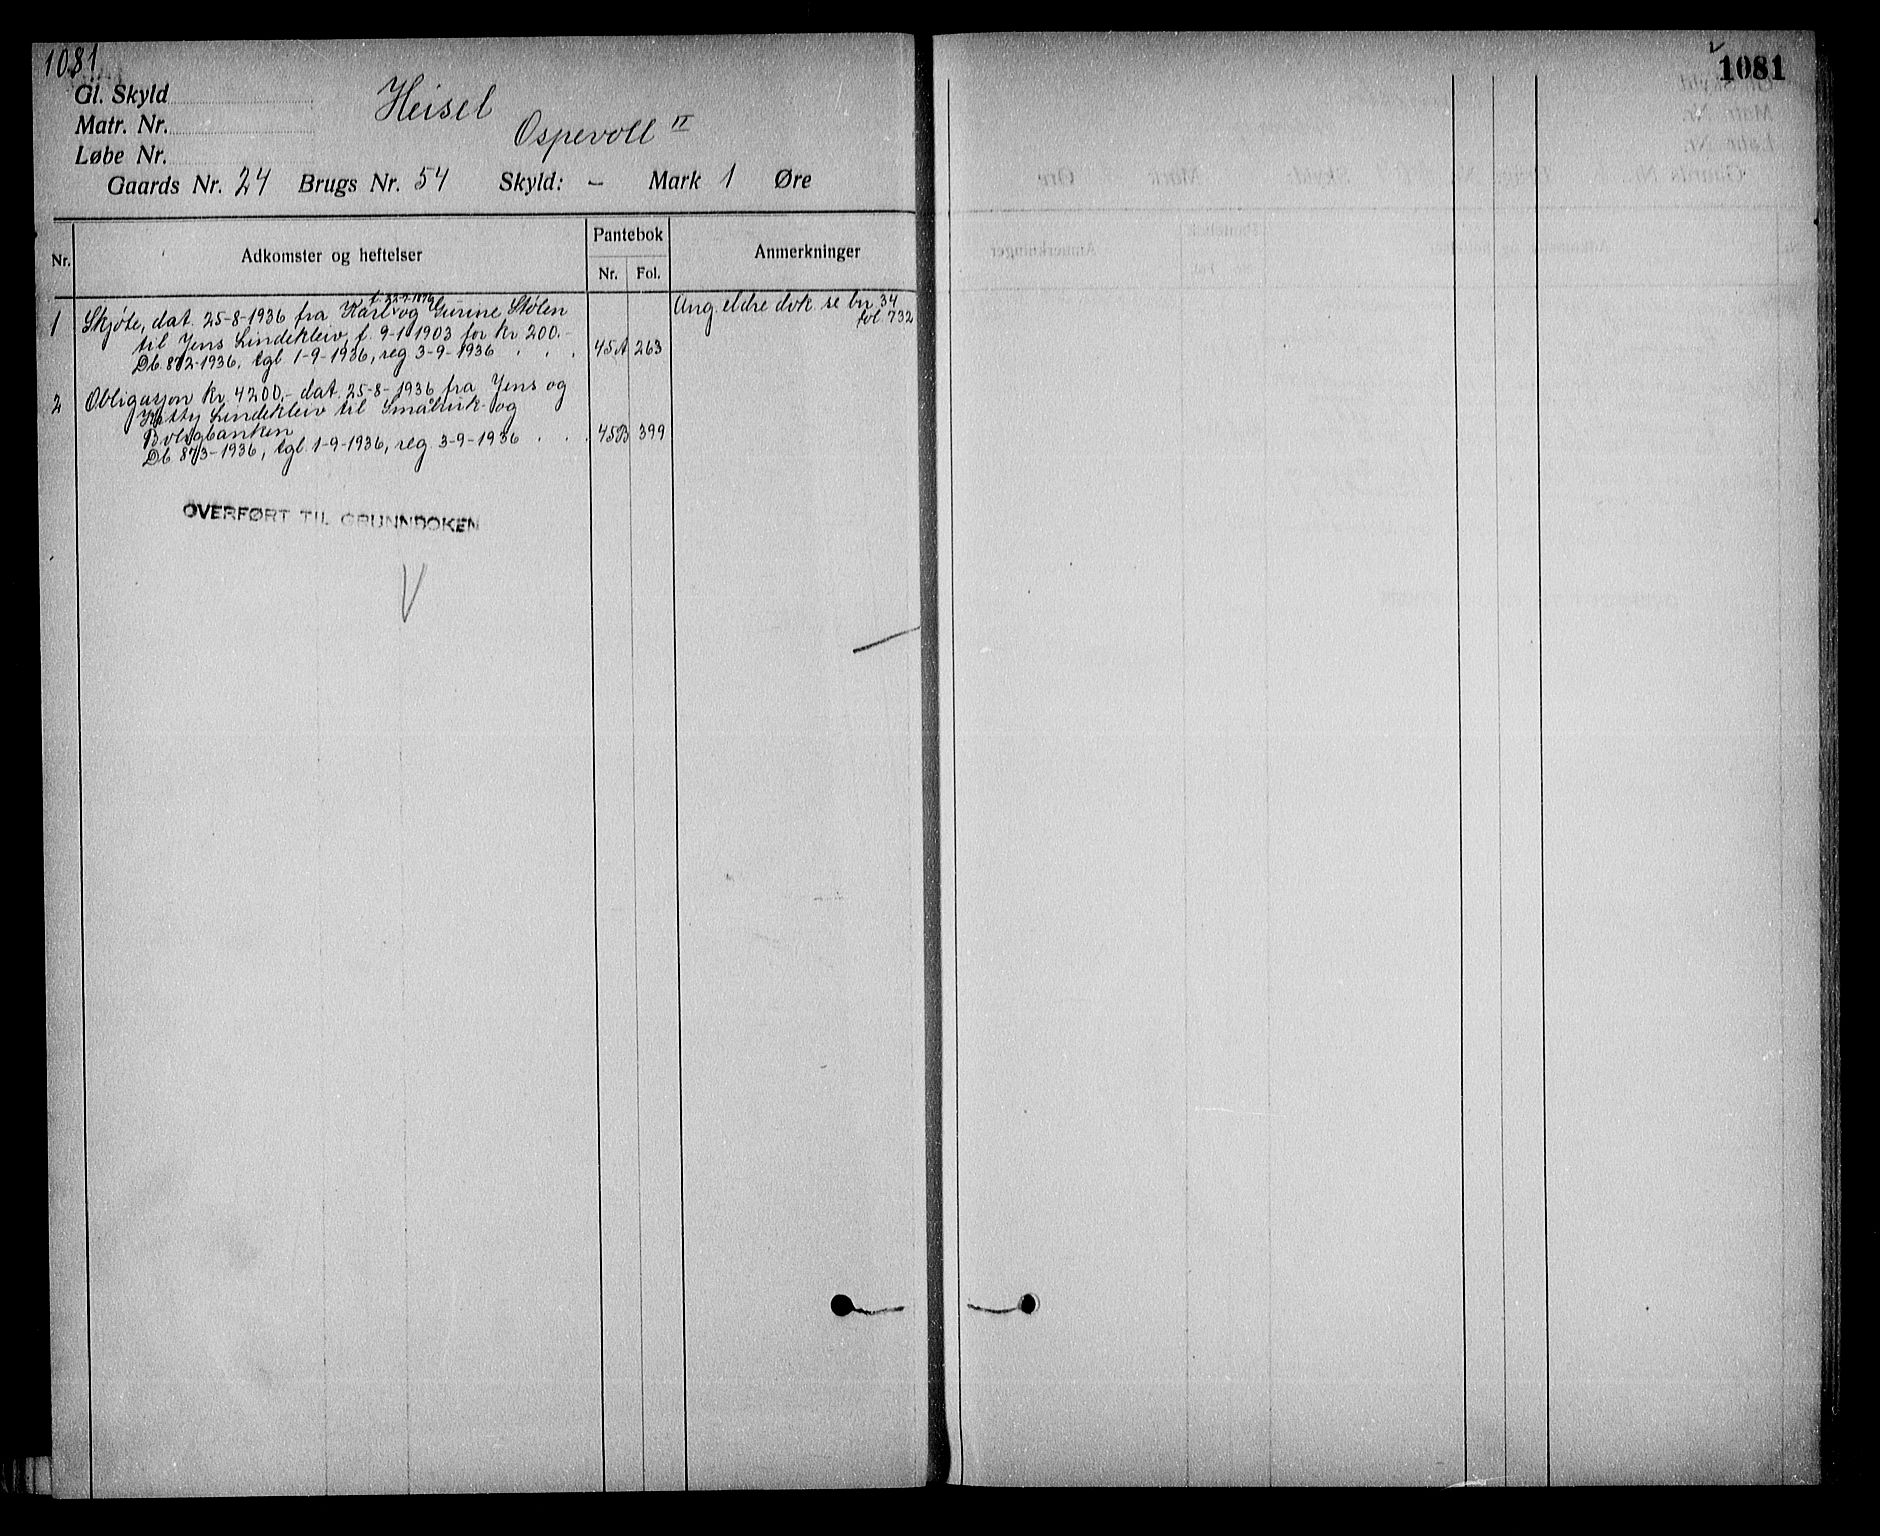 1081
1081
Gl. Skyld
Matr. Nr.
Løbe Nr.
Heisel
Ospevoll II
Gaards Nr. 24 Brugs Nr. 54 Skyld: - Mark 1 Øre
Nr. Adkomster og heftelser Pantebok Nr. Fol. Anmerkninger
f. 22-9-1896
1 Skjøte, dat. 25-8-1936 fra Karl og Gurine Stølen Ang. eldre dok. se bn 34
til Jens Lindekleiv, f. 9-1-1903 for kr 200.- fol. 732
Db. 872-1936, tgl. 1-9-1936, reg 3-9-1936 . . . 45A 263
2 Obligasjon kr. 4200.- dat. 25-8-1936 fra Jens og
Lindekleiv til Småbruk- og
Boligbanken
Db 873-1936, tgl. 1-9-1936, reg 3-9-1936 . . . 45B 399
OVERFØRT TIL GRUNNBOKEN